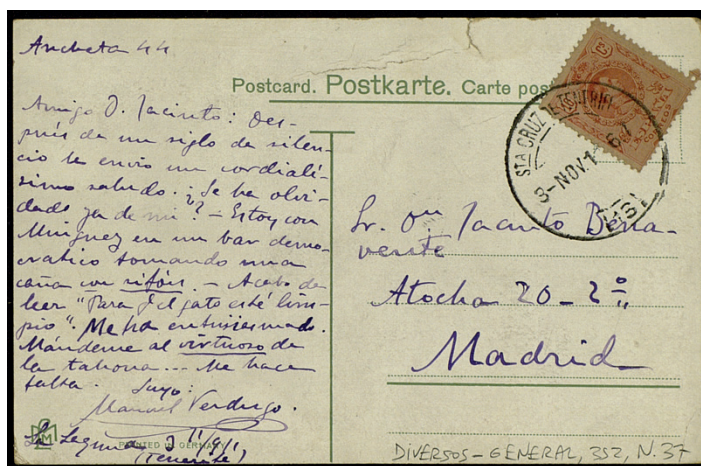 Ancheta 44
Postcard. Postkarte. Carte pos
Amigo D. Jacinto: Des-
pués de un siglo de silen-
cio le envío un cordialí-
simo saludo. ¿Se ha olvi-
dado ya de mi? - Estoy con
Minguez en un bar demo-
cratico tomando una
caña con sifón. - Acabo de
leer "Para q el gato esté lim-
pio". Me ha entusiasmado.
Mándeme al virtuoso de
la tahona... Me hace
falta. Suyo:
Manuel Verdugo.
La Laguna
(Tenerife)
PRINTED IN GERMANY
STA CRUZ DE TENERIFE
8-NOV 1
Sr. Dn Jacinto Bena-
vente
Atocha 20-2º
Madrid
DIVERSOS-GENERAL, 352, N.37